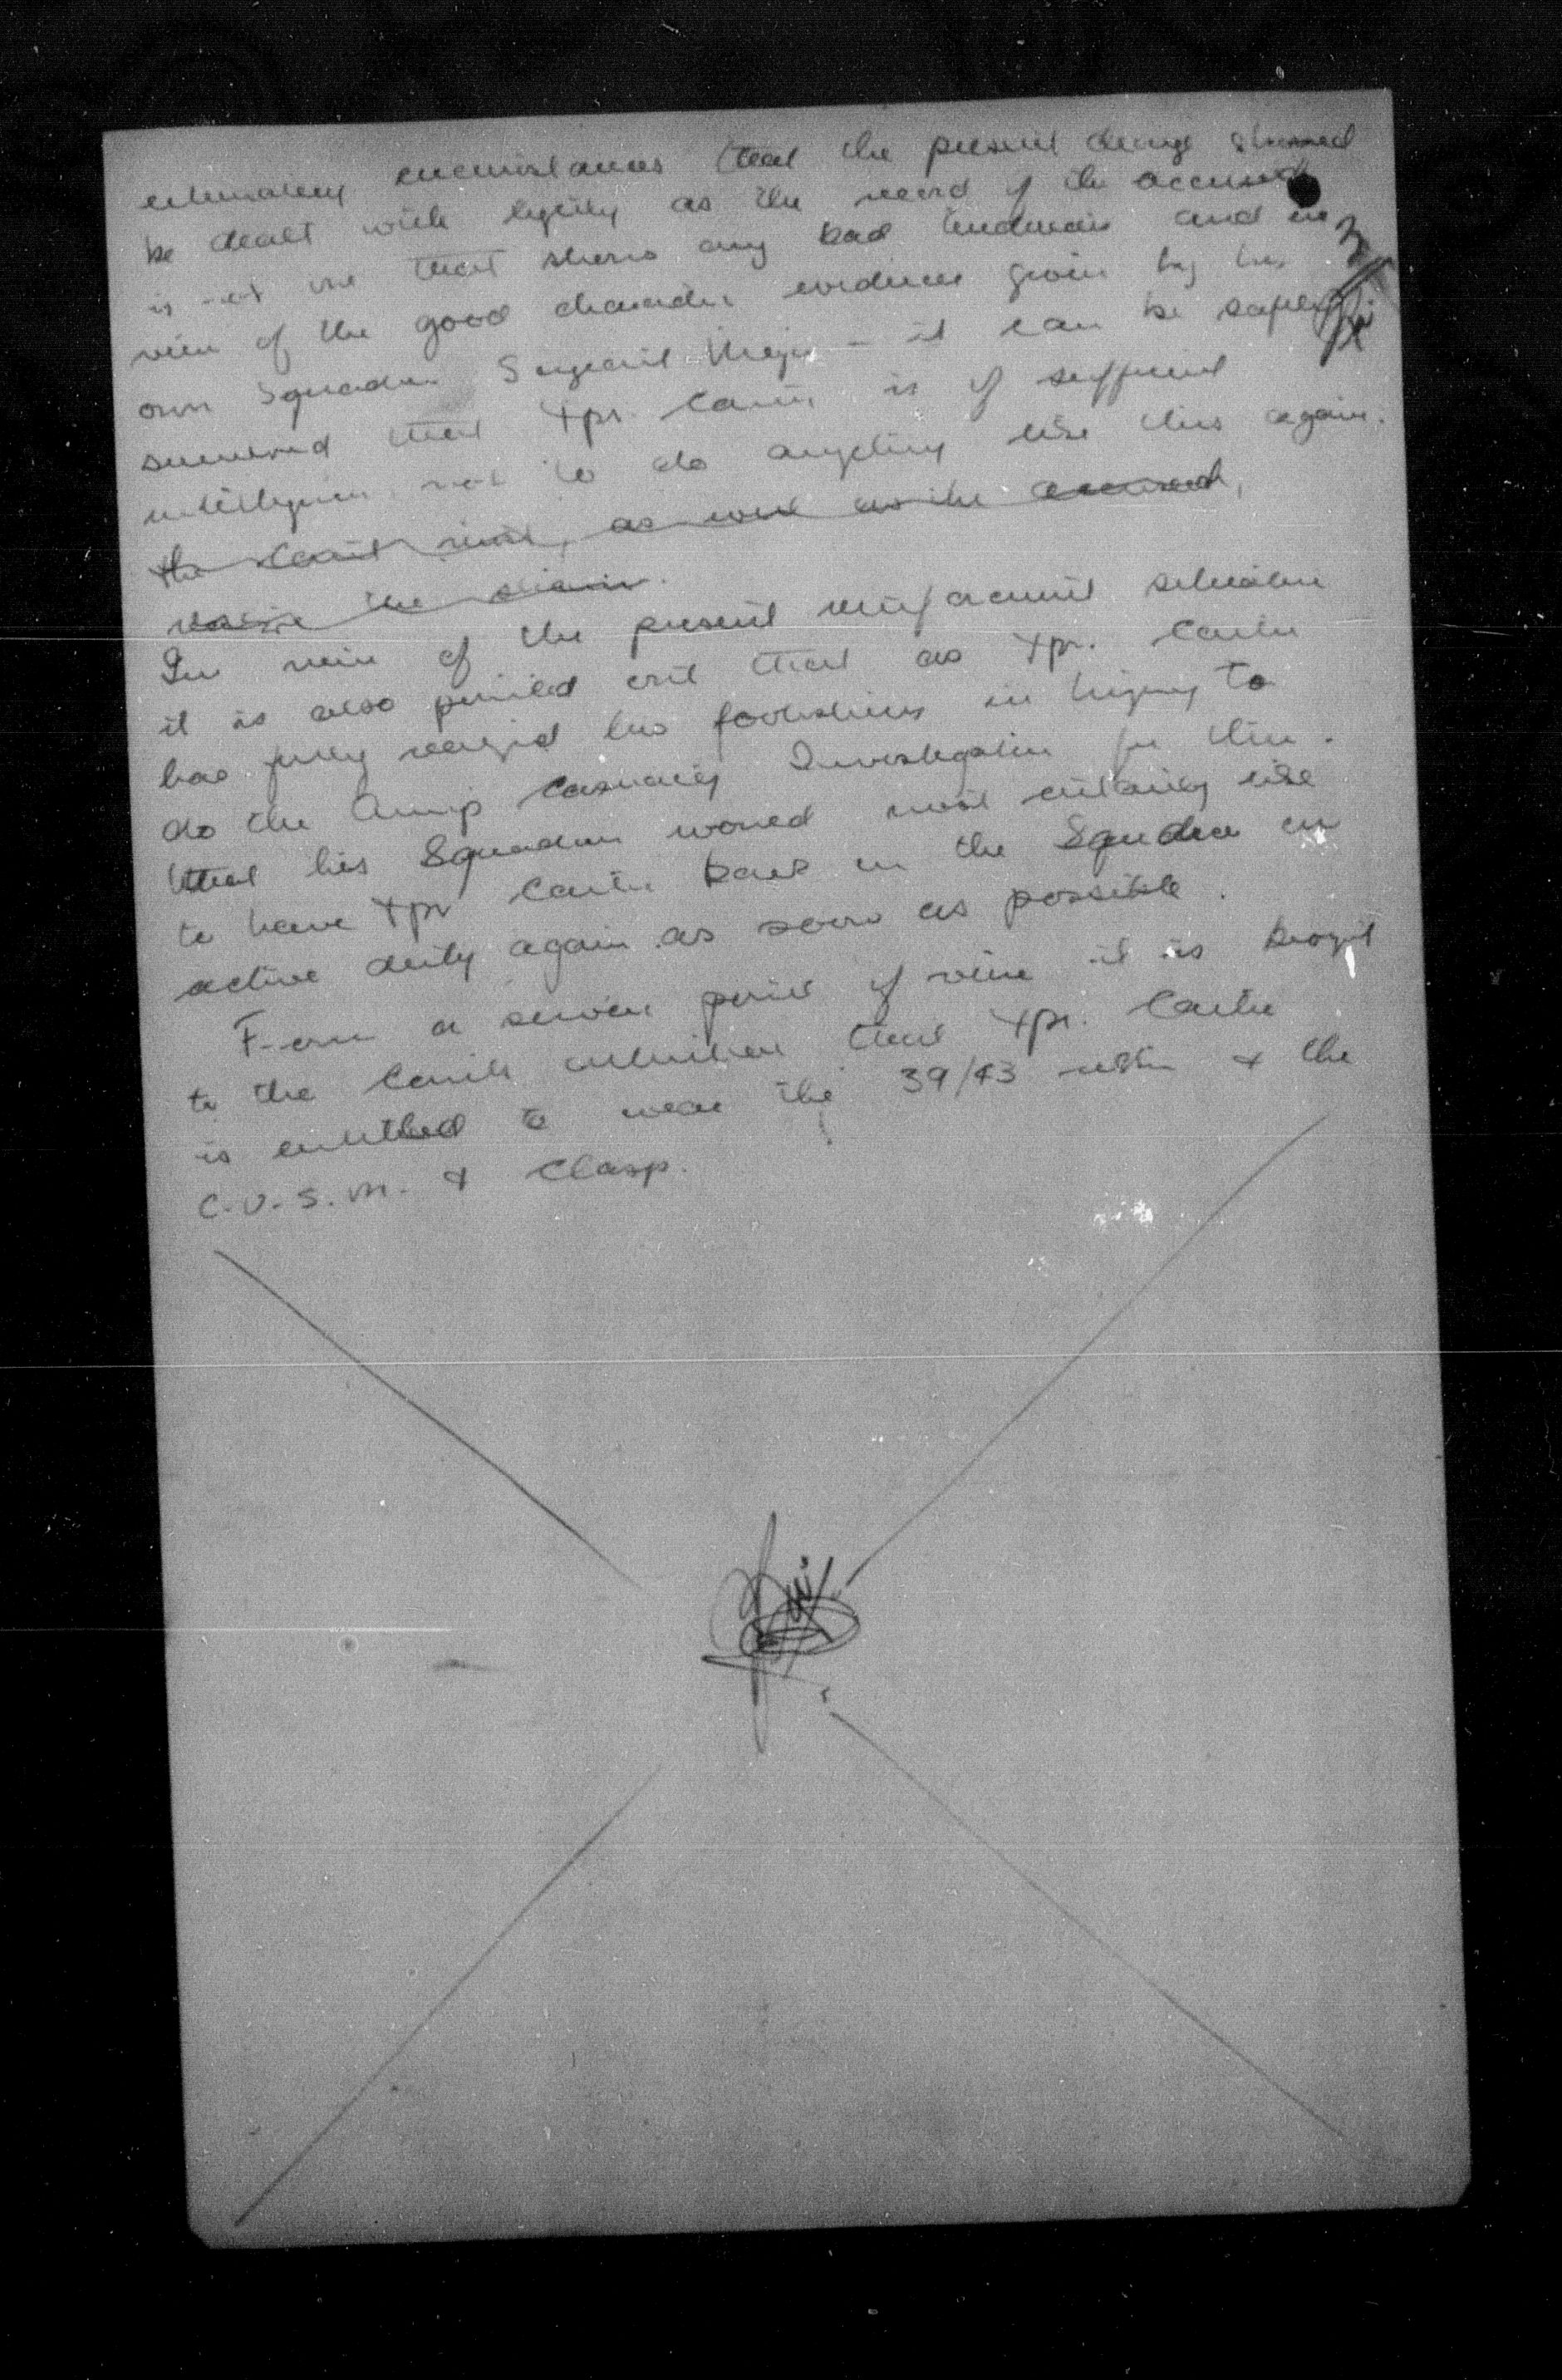 extenuating circumstances that the present charge should
be dealt with lightly as the record of the accused
is not one that shows any bad tendencies and in
view of the good character evidence given by his
own Squadron Sergeant Major - it can be safely
that Tpr. Carter is of sufficient
intelligence not to do anything like this again.
the Court must, as well as the accused,
the
In view of the present reinforcement situation
it is also pointed out that as Tpr. Carter
has fully realized his foolishness in trying to
do the Army Casualty Investigation for them.
that his Squadron would most certainly like
to have Tpr Carter back in the Squadron on
active duty again as soon as possible.
From a service point of view it is brought
to the Courts attention that Tpr. Carter
is entitled to wear the 39/43 & the
C.V.S.M. & Clasp.